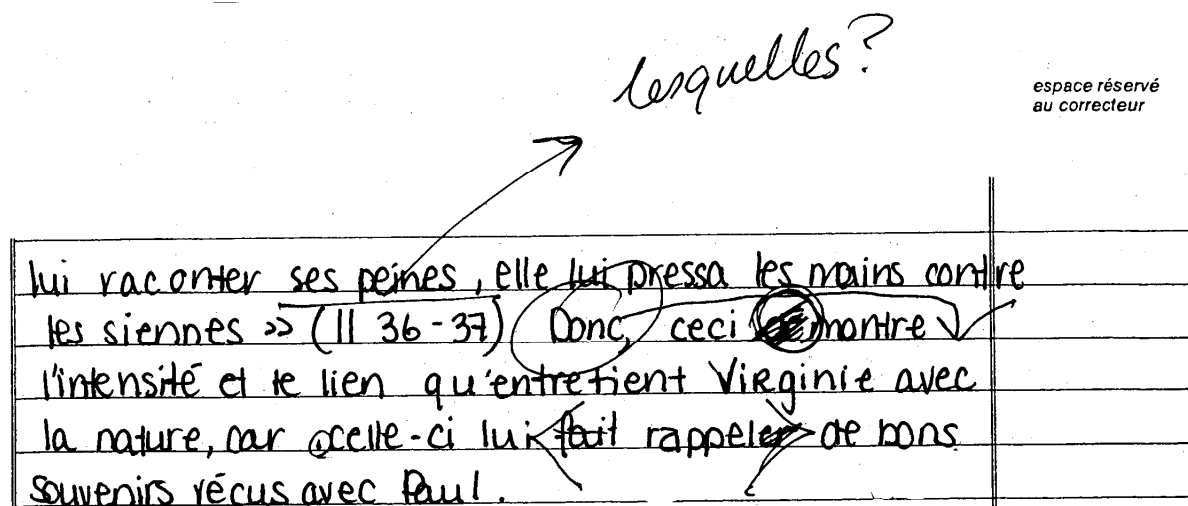 lesquelles?
espace réservé
au correcteur
lui raconter ses peines, elle lui pressa les mains contre
les siennes » (ll 36-37) Donc, ceci démontre
l'intensité et le lien qu'entretient Virginie avec
la nature, car celle-ci lui fait rappeler de bons
souvenirs vécus avec Paul.